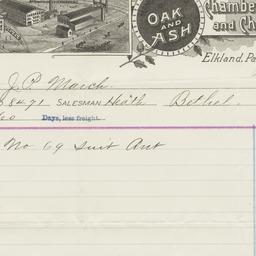 Chambe
OAK AND ASH
and Ch
Elkland, Pa
J. P. March
8471 SALESMAN Heath Bethel.
60 Days, less freight.
No 69 Suit Ant